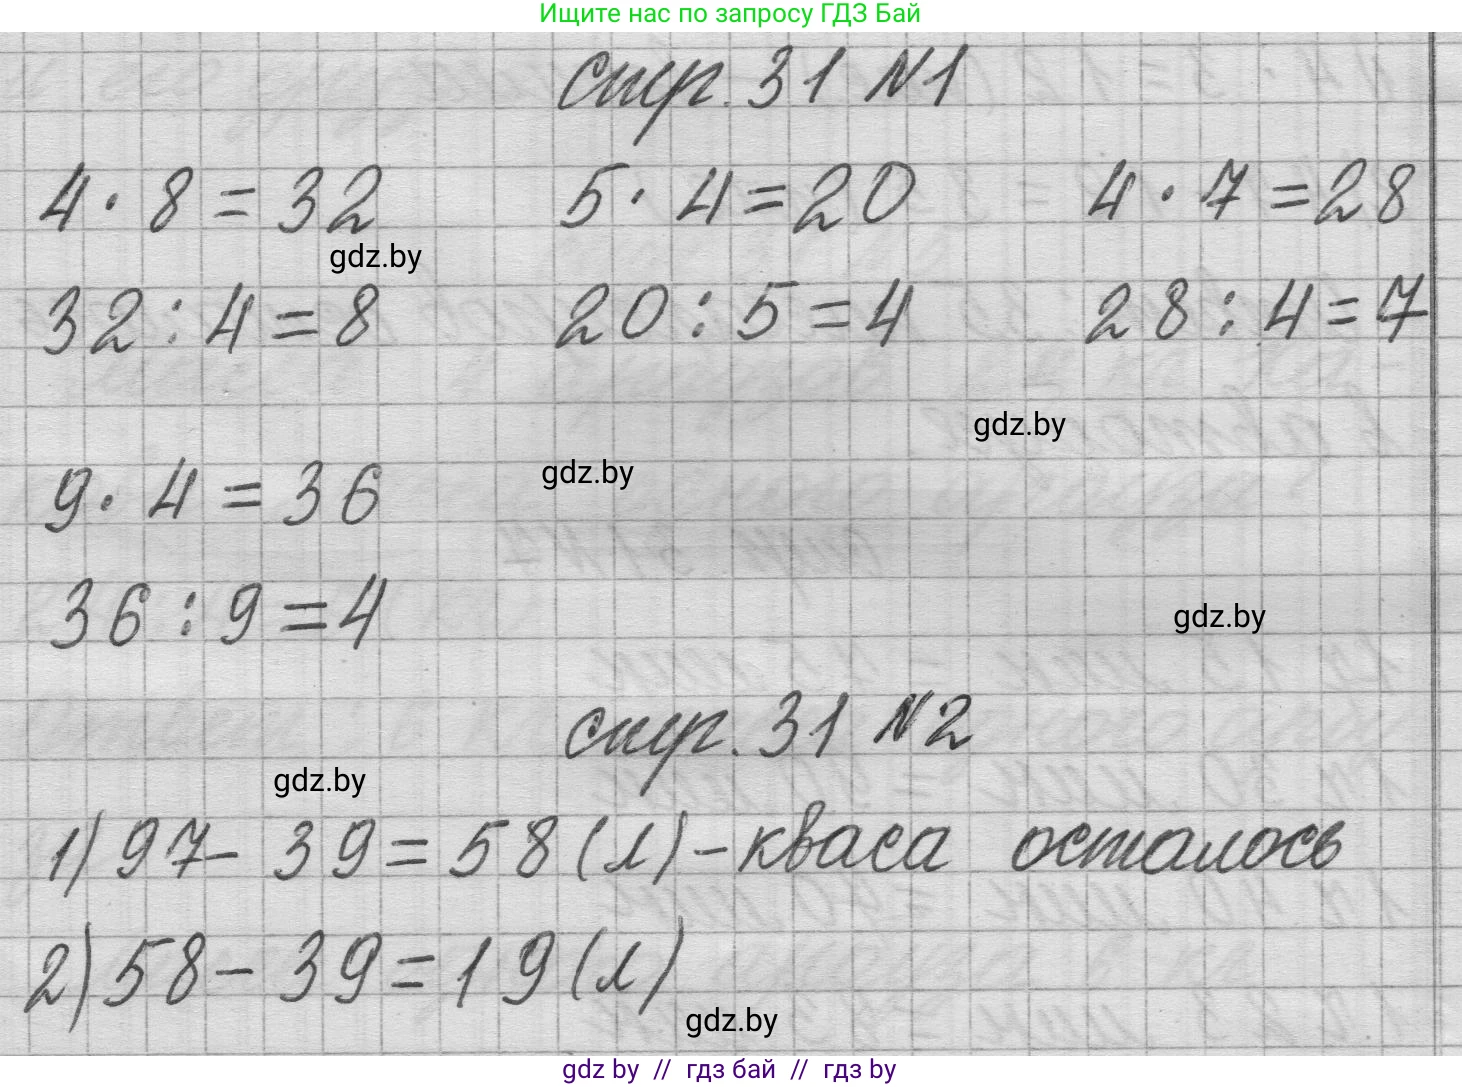 Ищите нас по запросу ГДЗ Бай
стр. 31 №1
4 · 8 = 32 5 · 4 = 20 4 · 7 = 28
gdz.by
32 : 4 = 8 20 : 5 = 4 28 : 4 = 7
gdz.by
gdz.by
9 · 4 = 36
36 : 9 = 4
gdz.by
стр. 31 №2
gdz.by
1) 97 - 39 = 58 (л) - кваса осталось
2) 58 - 39 = 19 (л)
gdz.by
gdz by // гдз бай // гдз by